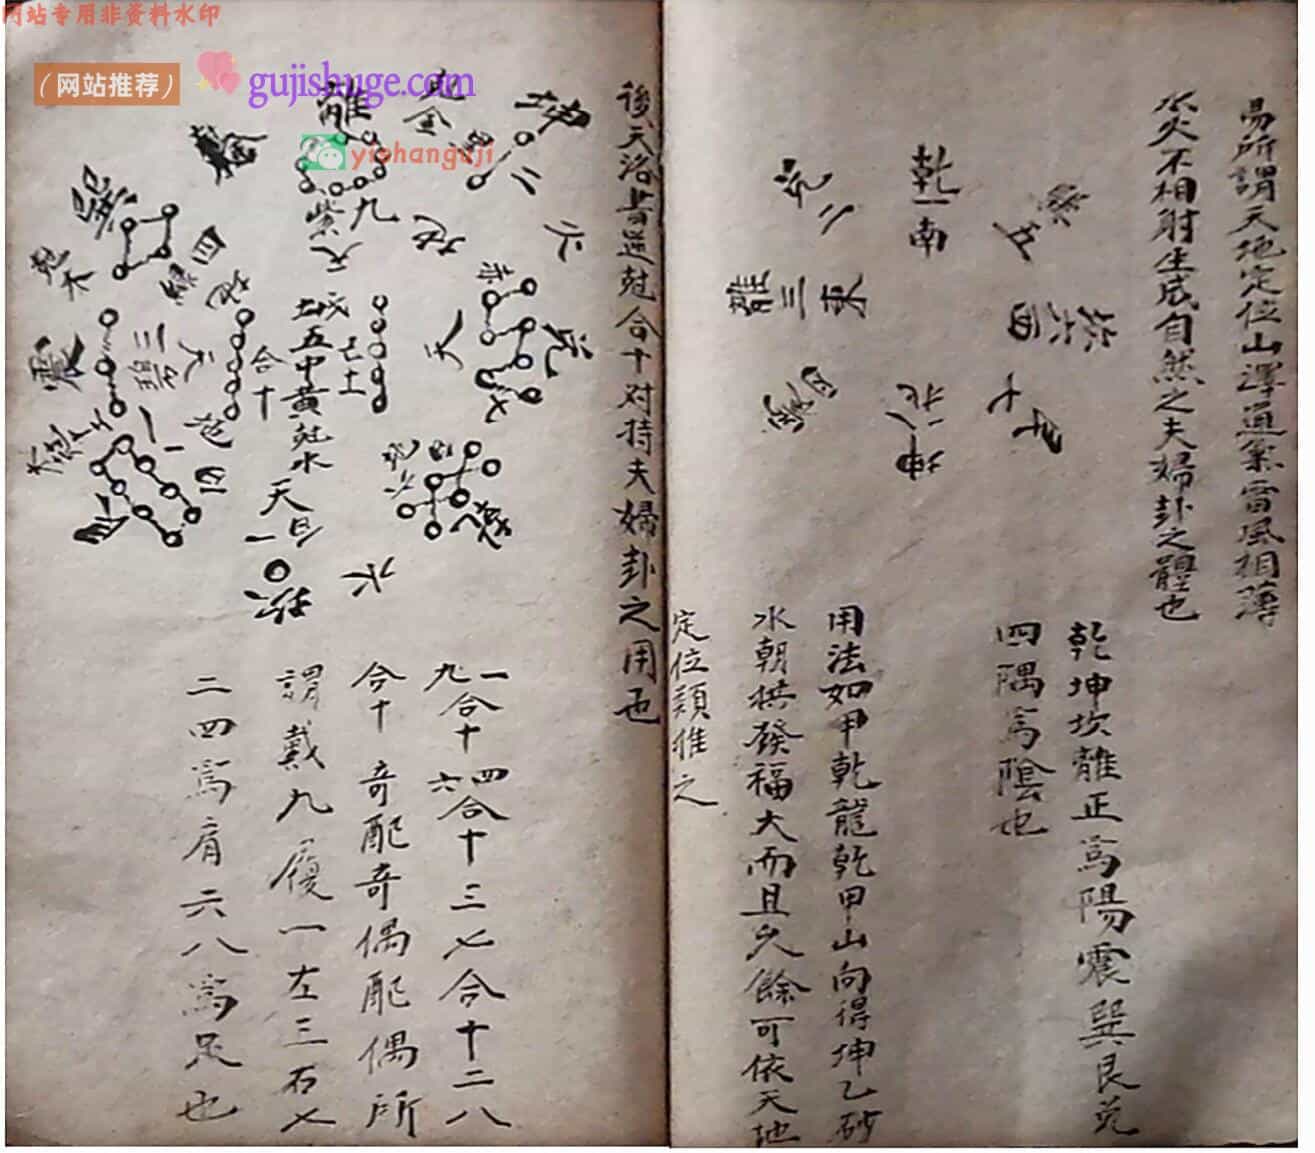 网站专用非资料水印
（网站推荐）
gujishuge.com
yishanguji
易所謂天地定位山澤通氣雷風相薄
水火不相射生成自然之夫婦卦之體也
乾一南
兌二
離三東
震四
巽五
坎六西
艮七
坤八北
乾坤坎離正為陽震巽艮兌
四隅為陰也
用法如甲乾龍乾甲山向得坤乙砂
水朝拱發福大而且久餘可依天地
定位類推之
後天洛書逆尅合十对待夫婦卦之用也
坤
二
火
離
九
紫
天
地
巽
四
綠
地
震
三
碧
天
地
合十
五中黃
尅水
天
一
坎
水
兌
七
赤
天
乾
六
八
艮
一九合十四六合十三七合十二八
合十奇配奇偶配偶所
謂戴九履一左三右七
二四為肩六八為足也